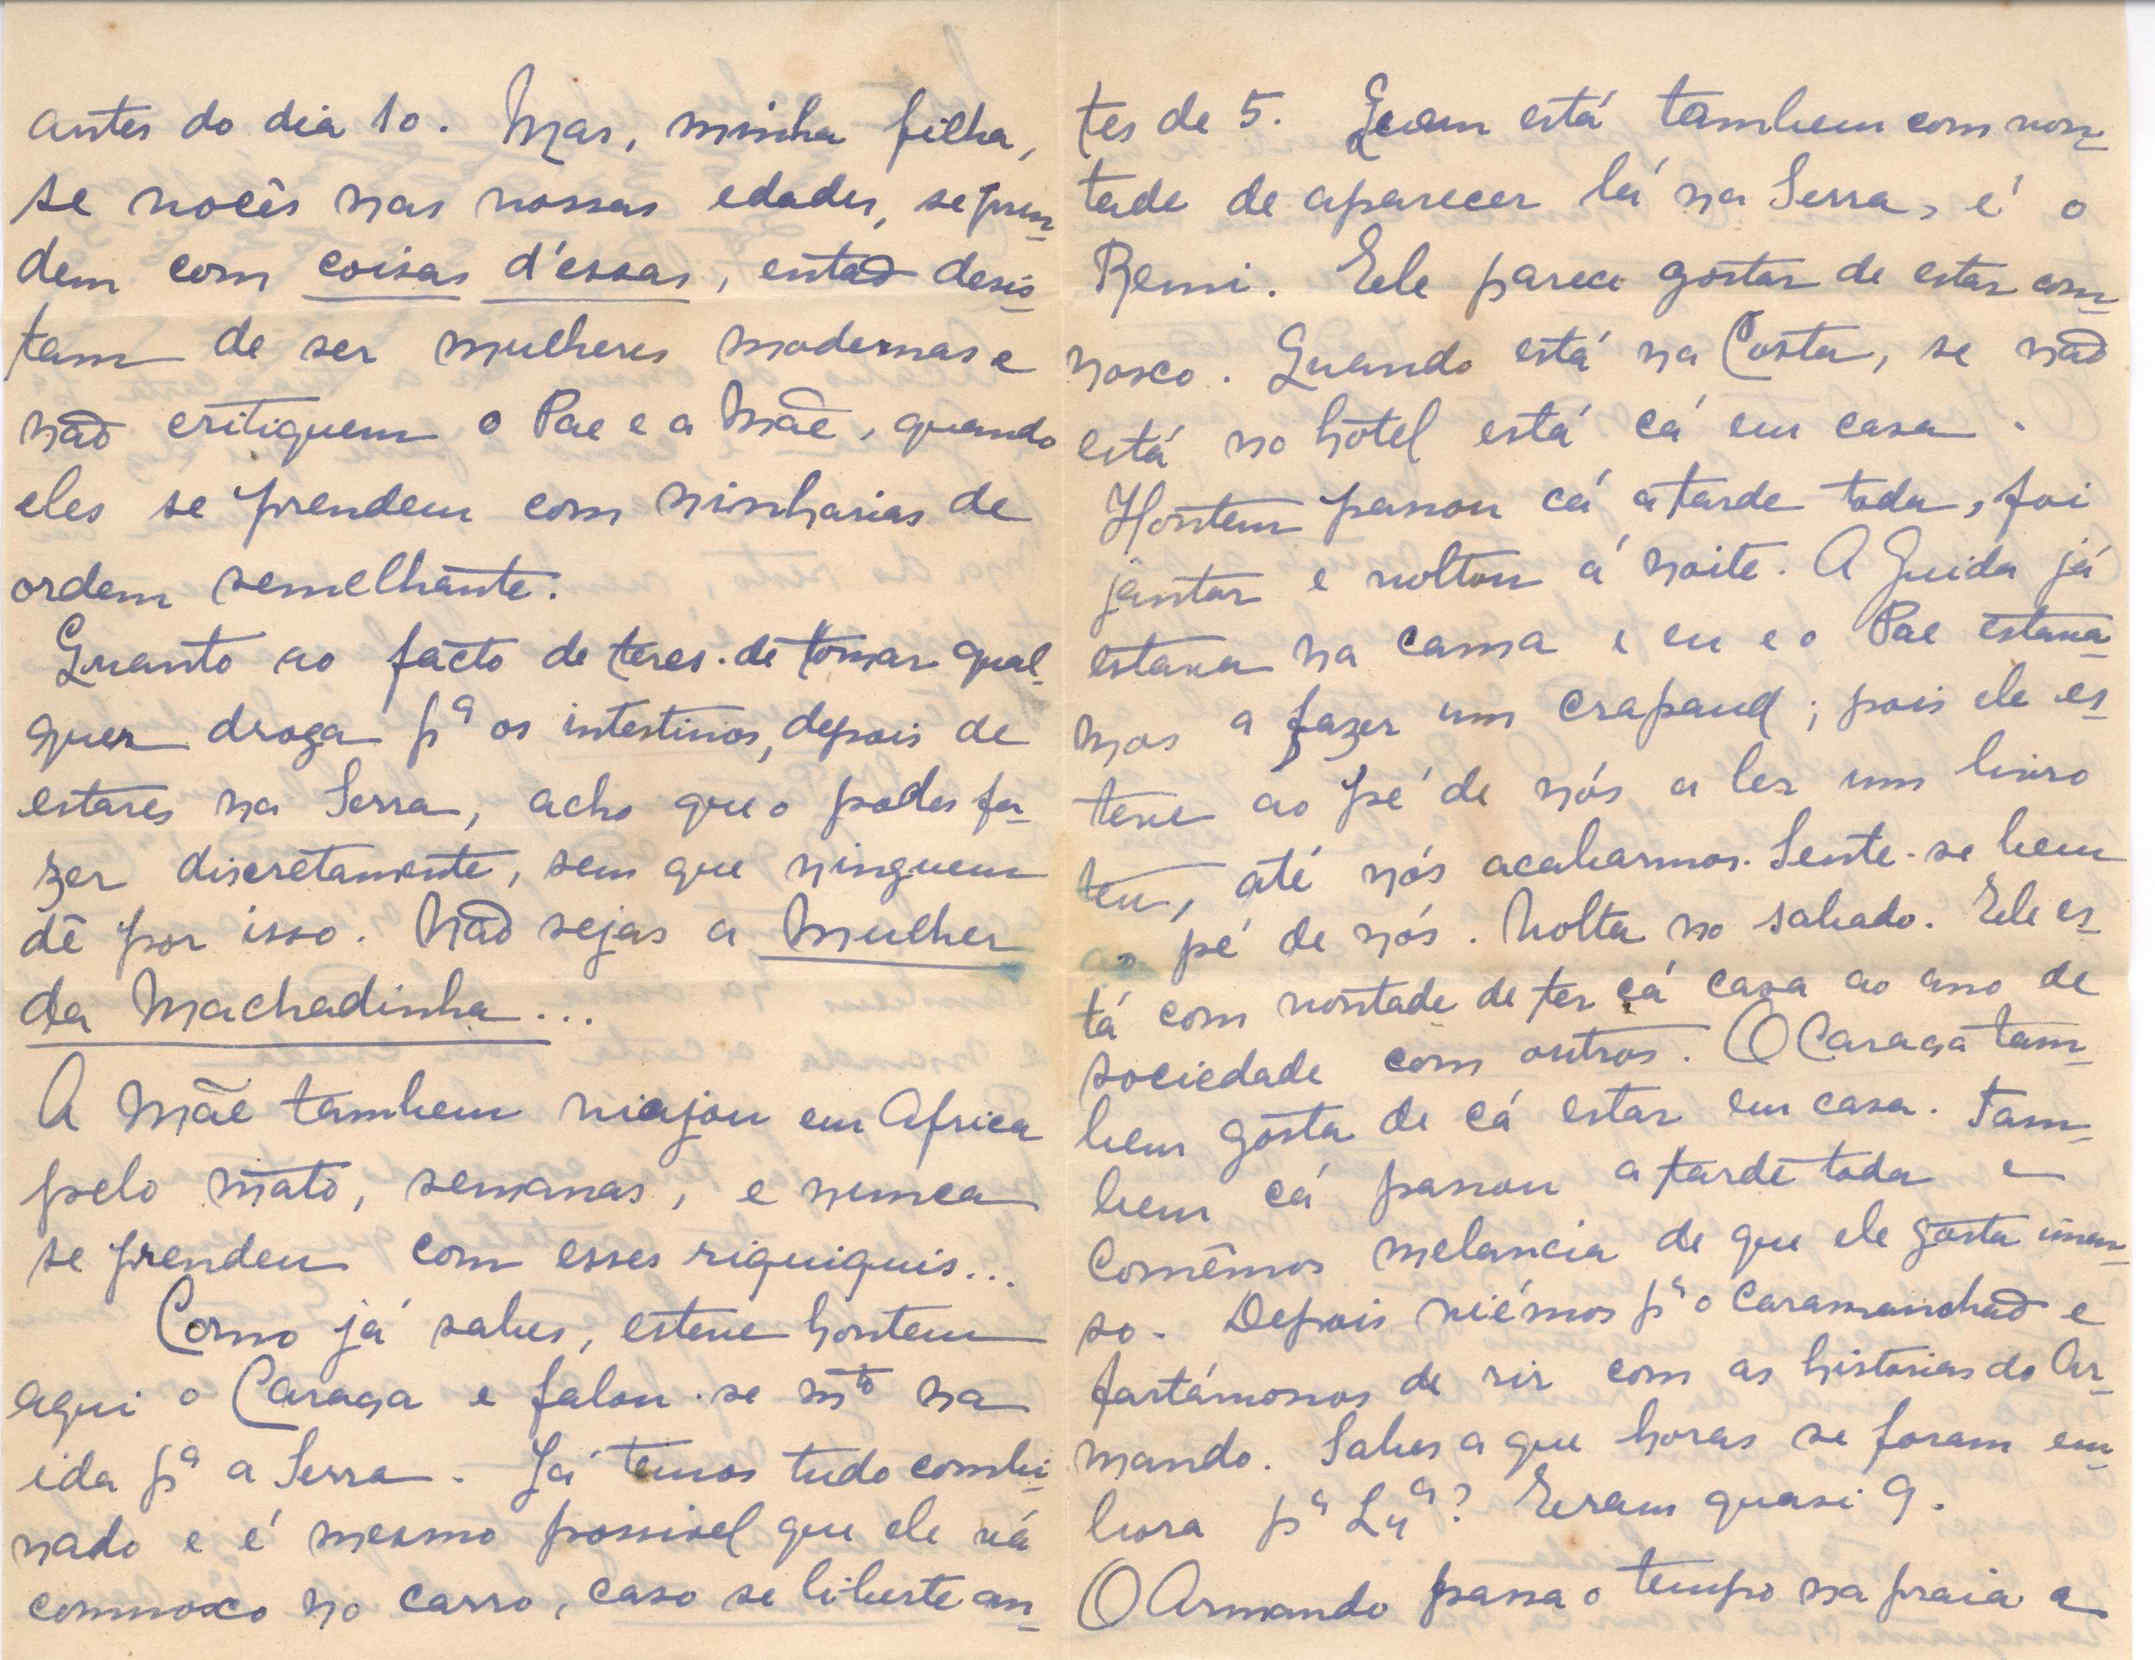 antes do dia 10. Mas, minha filha,
se vocês nas vossas edades, se pren-
dem com coisas d'essas, então desis-
tam de ser mulheres modernas e
não critiquem o Pae e a Mãe, quando
eles se prendem com ninharias de
ordem semelhante.
Quanto ao facto de teres de tomar qual-
quer droga pª os intestinos, depois de
estares na Serra, acho que o podes fa-
zer discretamente, sem que ninguem
dê por isso. Não sejas a Mulher
da Machadinha...
A Mãe tambem viajou em Africa
pelo mato, semanas, e nunca
se prendeu com esses riquiquis...
Como já sabes, esteve hontem
aqui o Caraça e falou-se mtº na
ida pª a Serra. Já temos tudo combi-
nado e é mesmo possivel que ele vá
comnosco no carro, caso se liberte an-
tes de 5. Quem está tambem com von-
tade de aparecer lá na Serra, é o
Remi. Ele parece gostar de estar com-
nosco. Quando está na Costa, se não
está no hotel está cá em casa.
Hontem passou cá a tarde toda, foi
jantar e voltou á noite. A Guida já
estava na cama e eu e o Pae estava-
mos a fazer um crapaud; pois ele es-
teve ao pé de nós a ler um livro
teu, até nós acabarmos. Sente-se bem
ao pé de nós. Volta no sabado. Ele es-
tá com vontade de ter cá casa ao ano de
sociedade com outros. O Caraça tam-
bem gosta de cá estar em casa. Tam-
bem cá passou a tarde toda e
comêmos melancia de que ele gosta imen-
so. Depois viémos pª o caramanchão e
fartámonos de rir com as historias do Ar-
mando. Sabes a que horas se foram em-
bora pª Lxª? Eram quasi 9.
O Armando passa o tempo na praia a